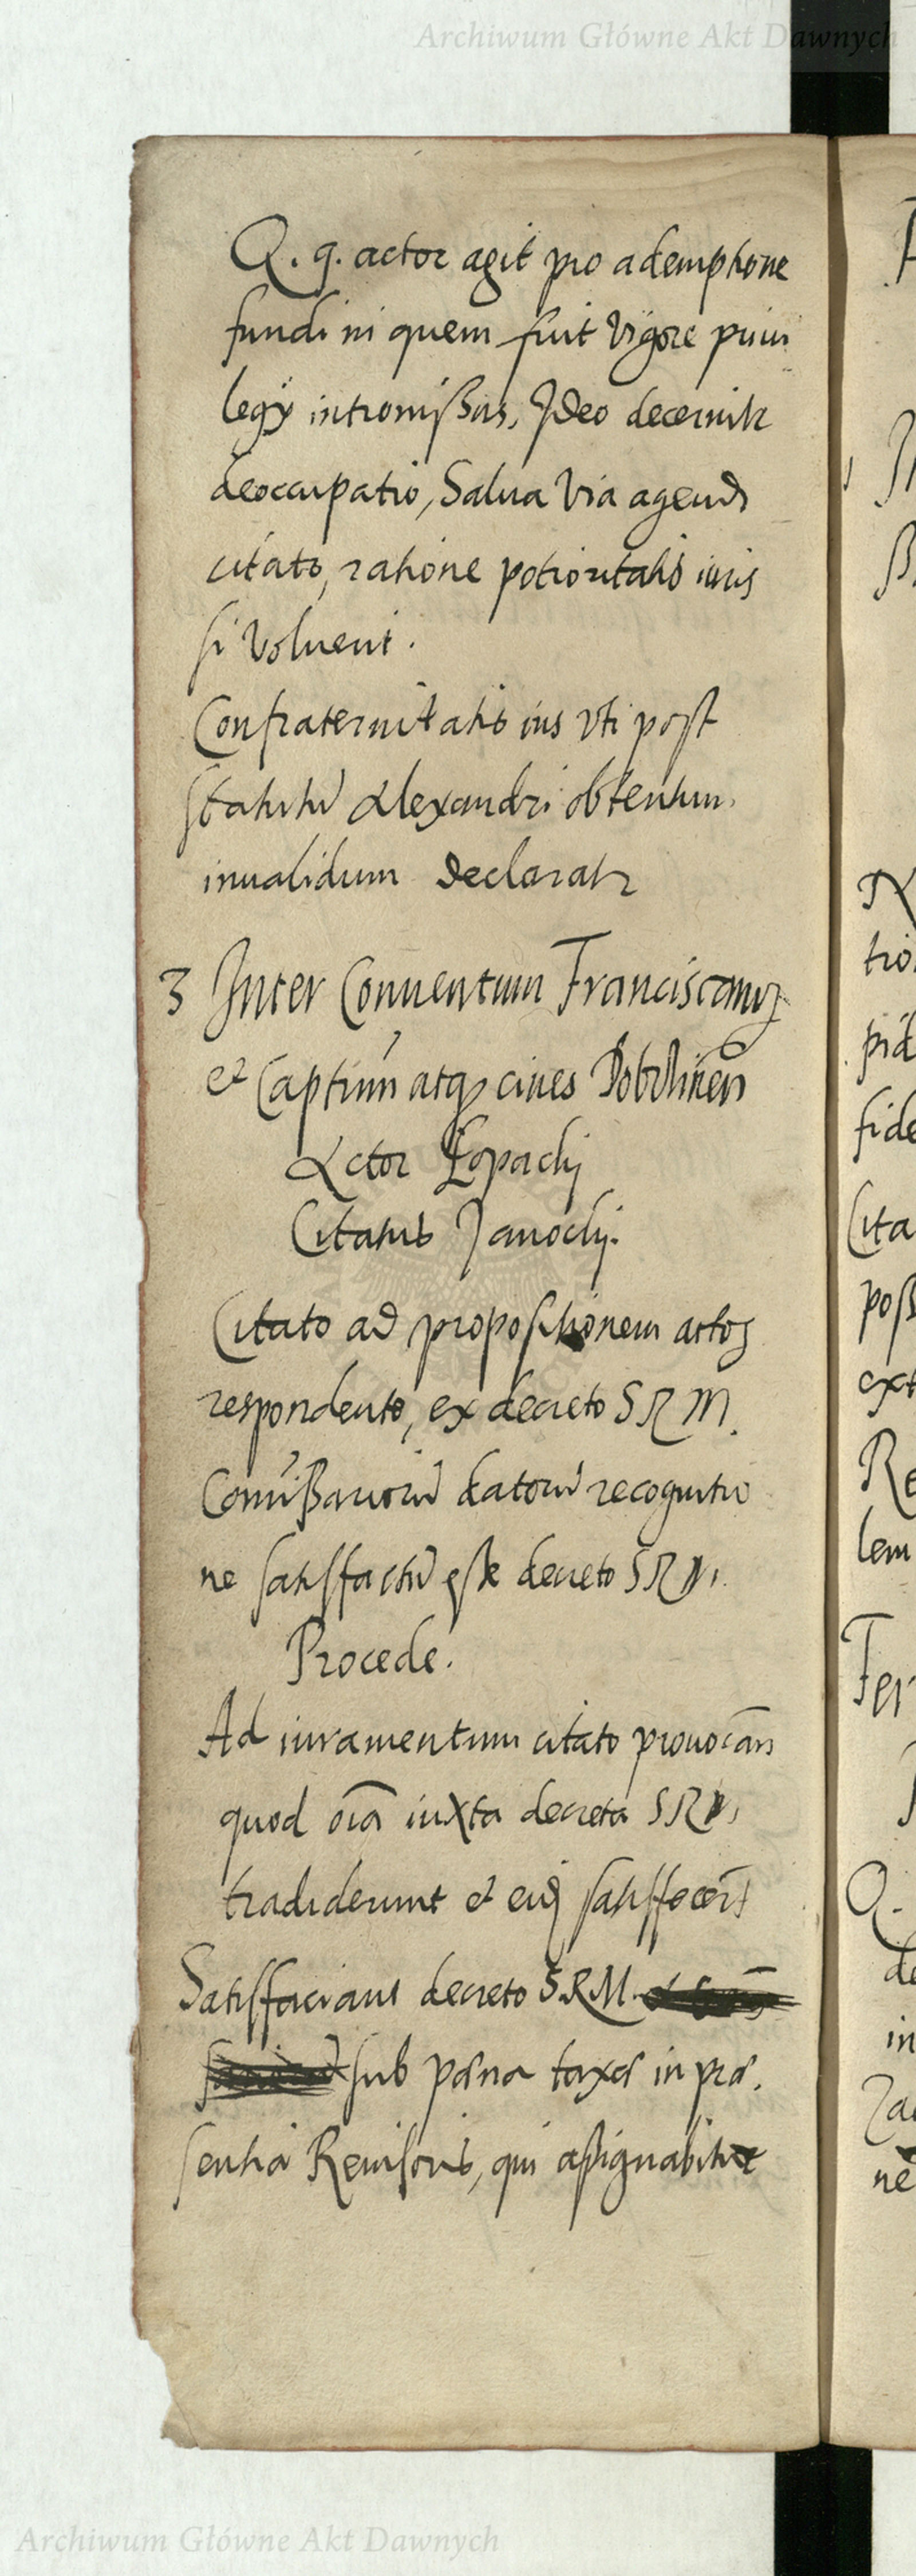 Archiwum Główne Akt Dawnych
Q. q. actor agit pro ademptione
fundi in quem fuit vigore priui
legij intromissus, Ideo decernitr
deoccupatio, Salua via agendi
citato, ratione potioritatis iuris
si voluerit.
Confraternitatis ius vti post
statutū Alexandri obtentum
inualidum declaratr
3 Inter Conuentum Franciscanorꝫ
et Captiuū atqꝫ ciues Dobrlinen̄
Actor Łopacky
Citatus Janocky.
Citato ad propositionem actorꝫ
respondento, ex decreto S R M.
Com̄issariorū datorū recognitio
ne satisfactū esse decreto S R M.
Procede.
Ad iuramentum citato prouocān
quod oīa iuxta decreta S R M,
tradiderunt et eiꝫ satisfecer̄t
Satisfaciant decreto S.R.M.
sub pœna taxæ in præ.
sentia Reuisoris, qui assignabitur
Archiwum Główne Akt Dawnych